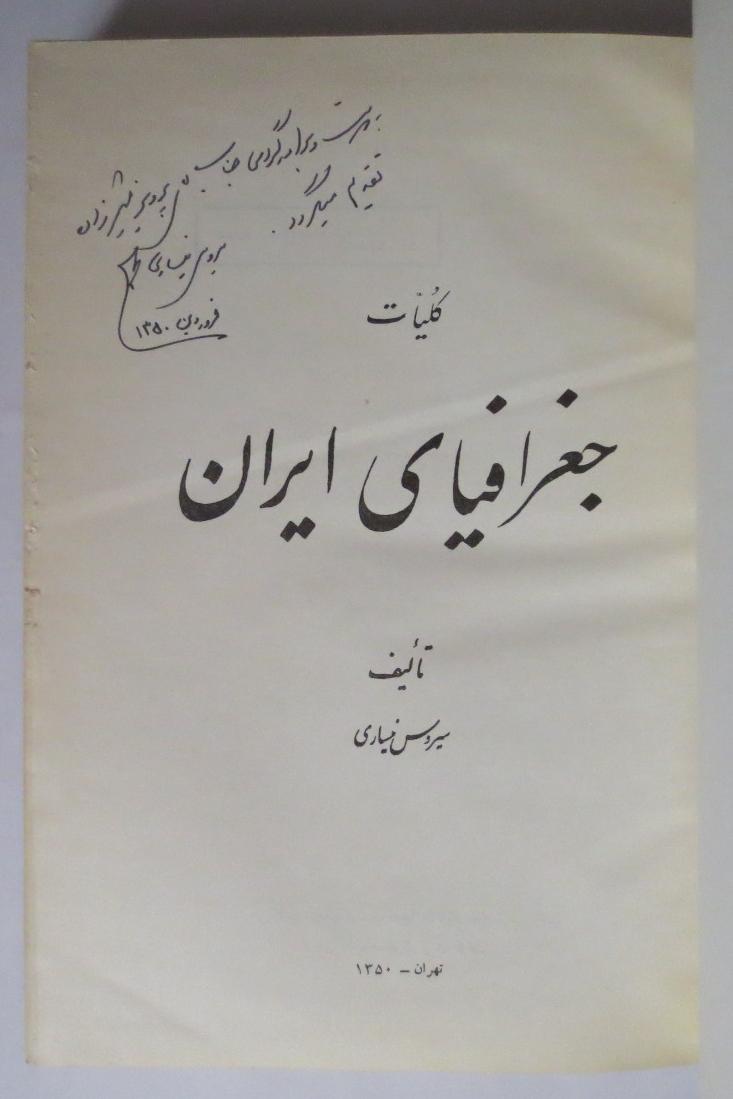 بدوست و برادر گرامی جناب آقای پرویز
تقدیم میگردد.
سیروس نیساری
فروردین ۱۳۵۰
کُلیّات
جغرافیای ایران
تألیف
سیروس نیساری
تهران ــ ۱۳۵۰